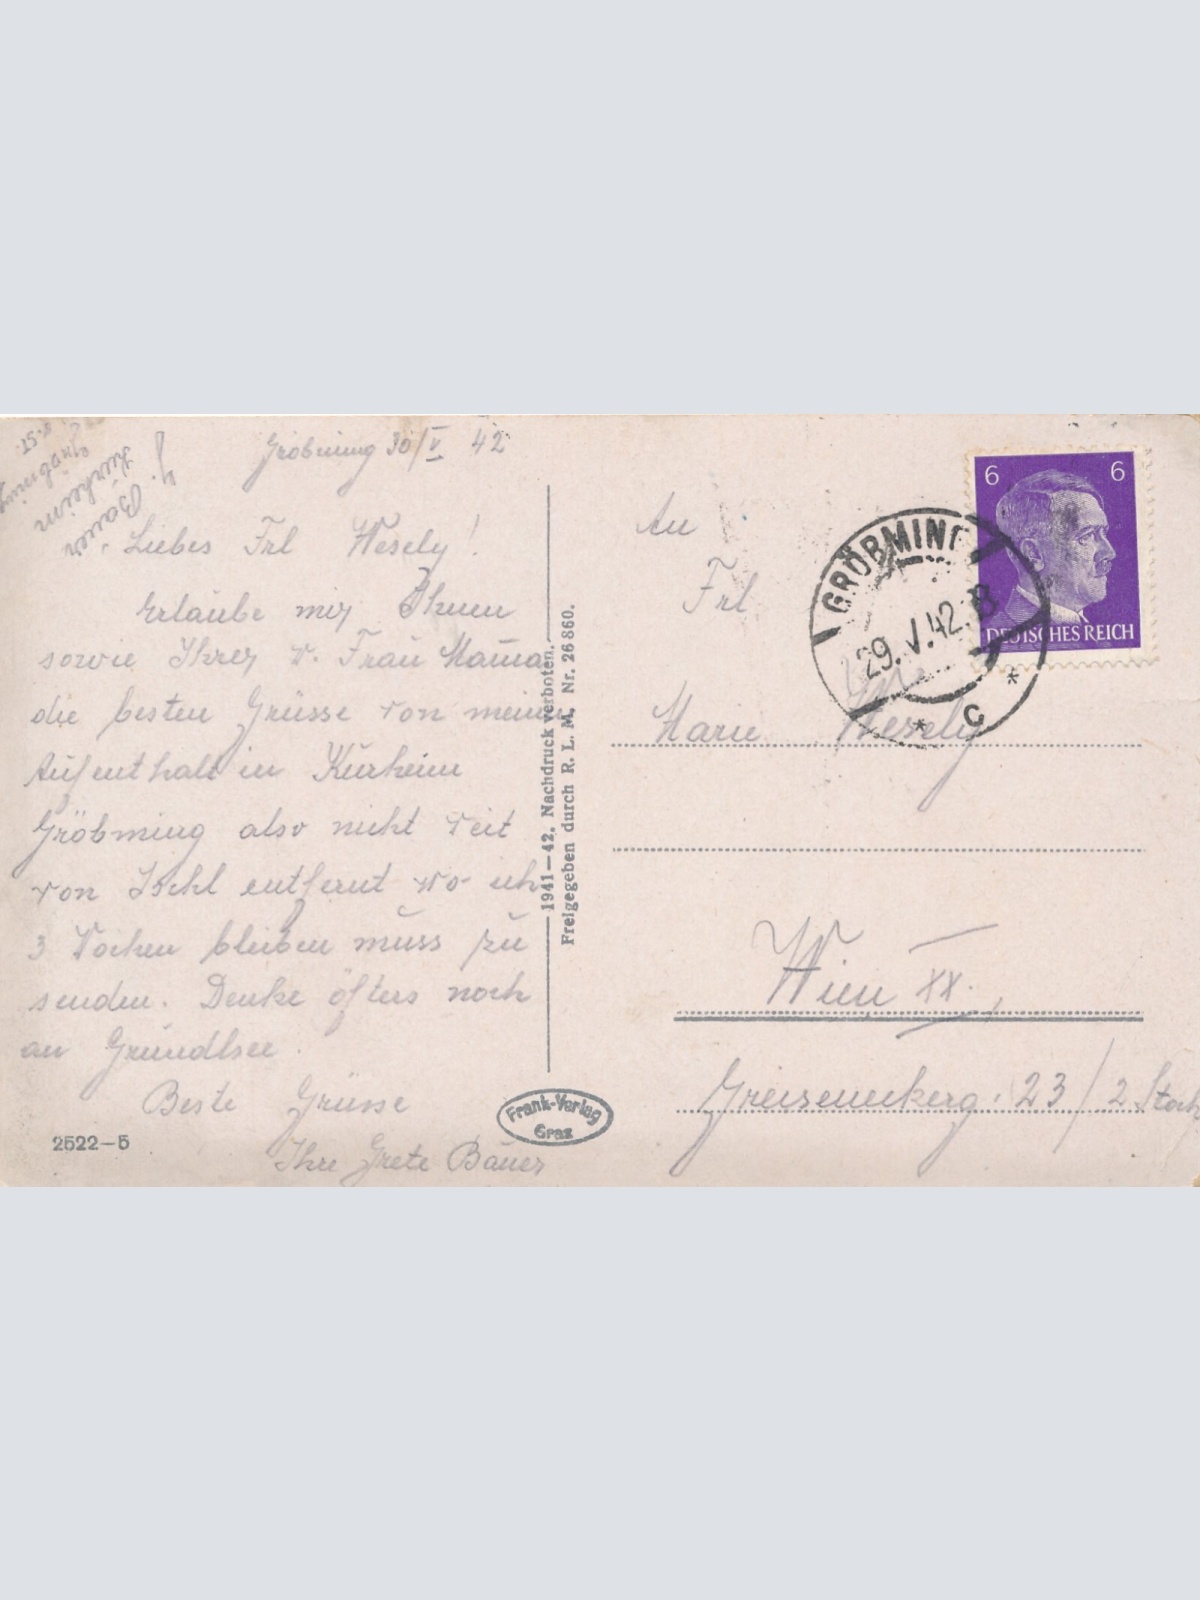 Gröbming 30/V 42
Liebes Frl Wesely!
Erlaube mir Ihnen
sowie Ihrer w. Frau Mama
die besten Grüsse von meinem
Aufenthalt in Kurheim
Gröbming also nicht weit
von Ischl entfernt wo ich
3 Wochen bleiben muss zu
senden. Denke öfters noch
an Grundlsee.
Beste Grüsse
Ihre Grete Bauer
G. Bauer
Kurheim
Gröbming
2522-5
1941-42. Nachdruck verboten.
Freigegeben durch R. L. M. Nr. 26860.
Frank-Verlag
Graz
6 6
DEUTSCHES REICH
GRÖBMING
29.V.42.
* C *
An
Frl
Marie Wesely
Wien XX.,
23/2 Stock